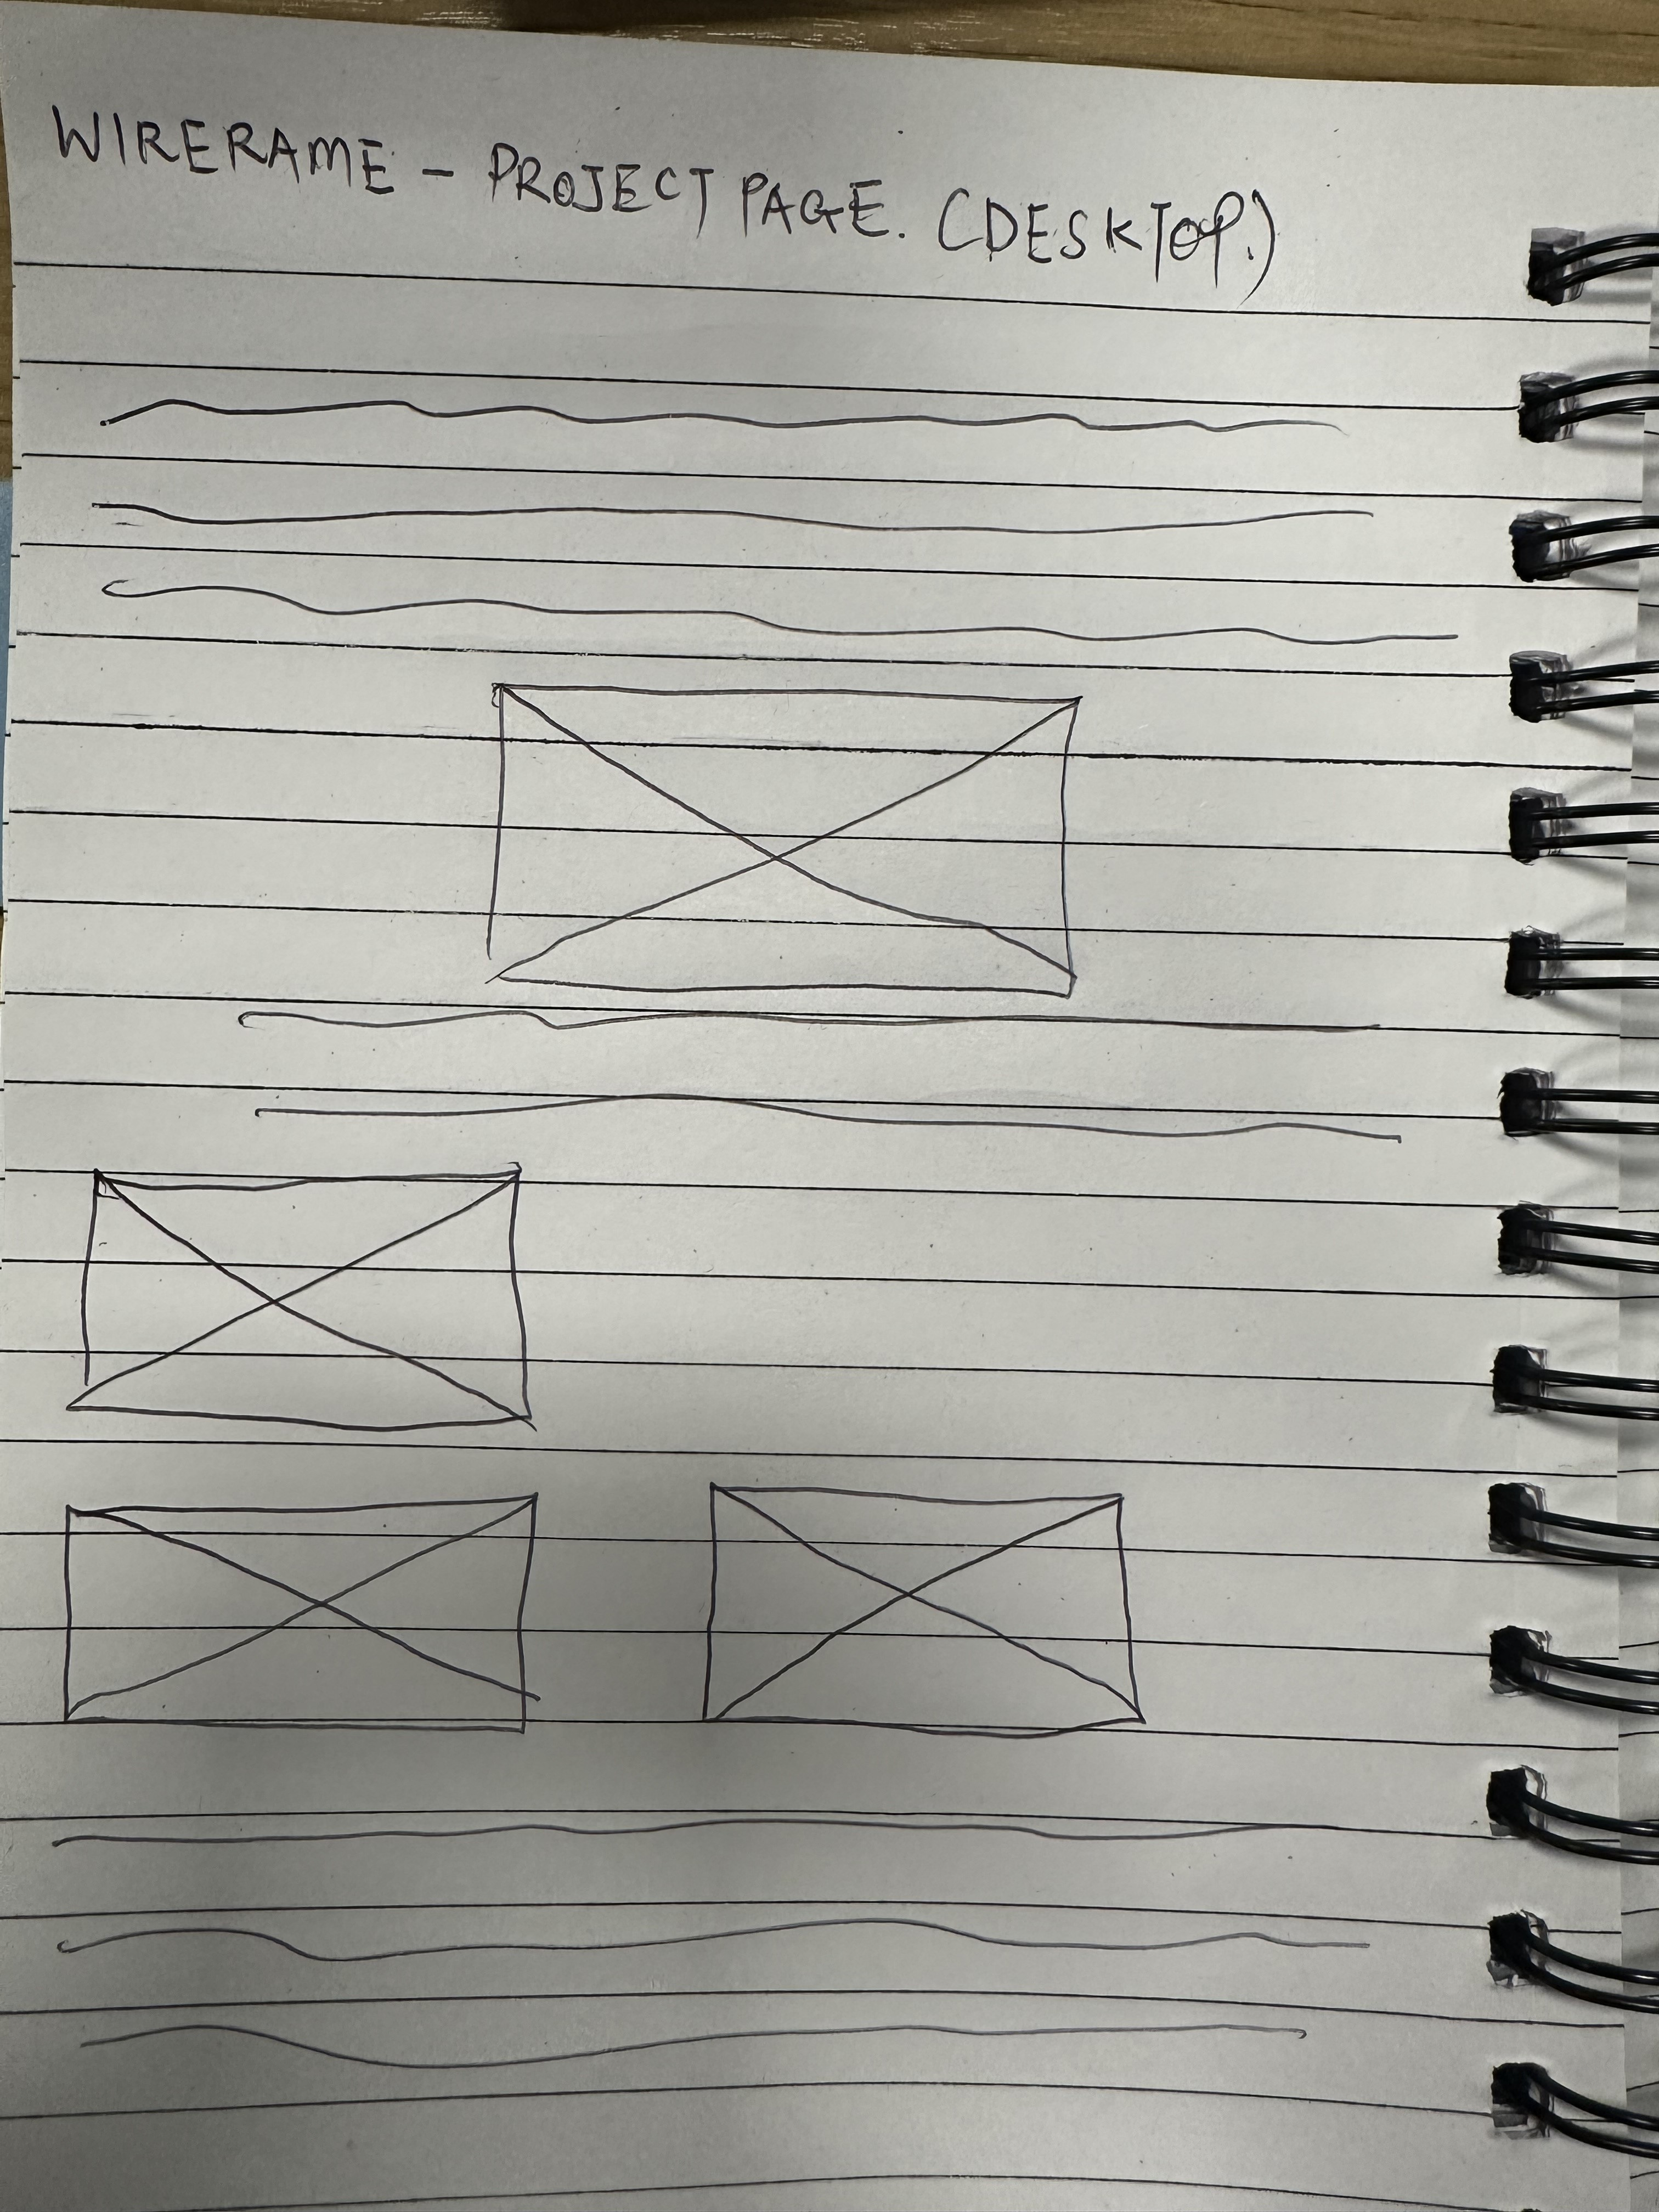 WIRERAME - PROJECT PAGE. (DESKTOP.)